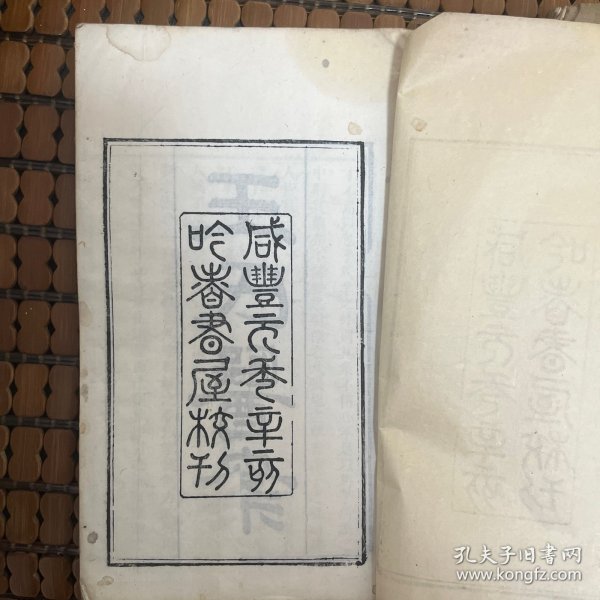 咸豐元秊辛亥
吟春書屋校刊
孔夫子旧书网
www.kongfz.com